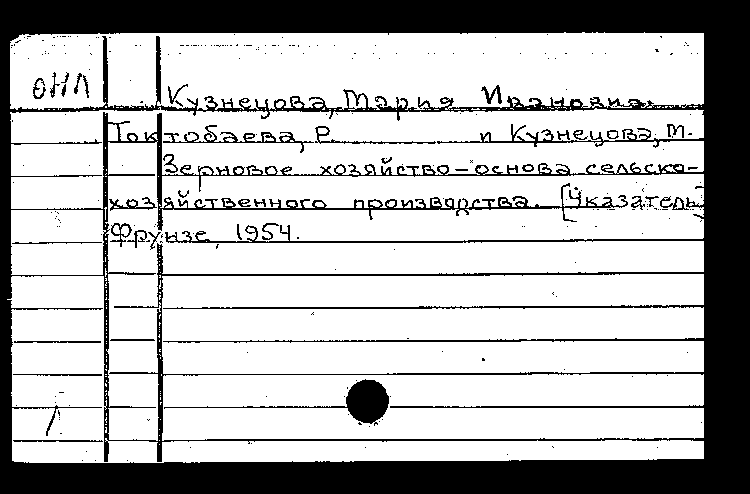 ОНЛ
Кузнецова, Мария Ивановна.
Токтобаева, Р. и Кузнецова, М.
Зерновое хозяйство – основа сельско-
хозяйственного производства. [Указатель]
Фрунзе, 1954.